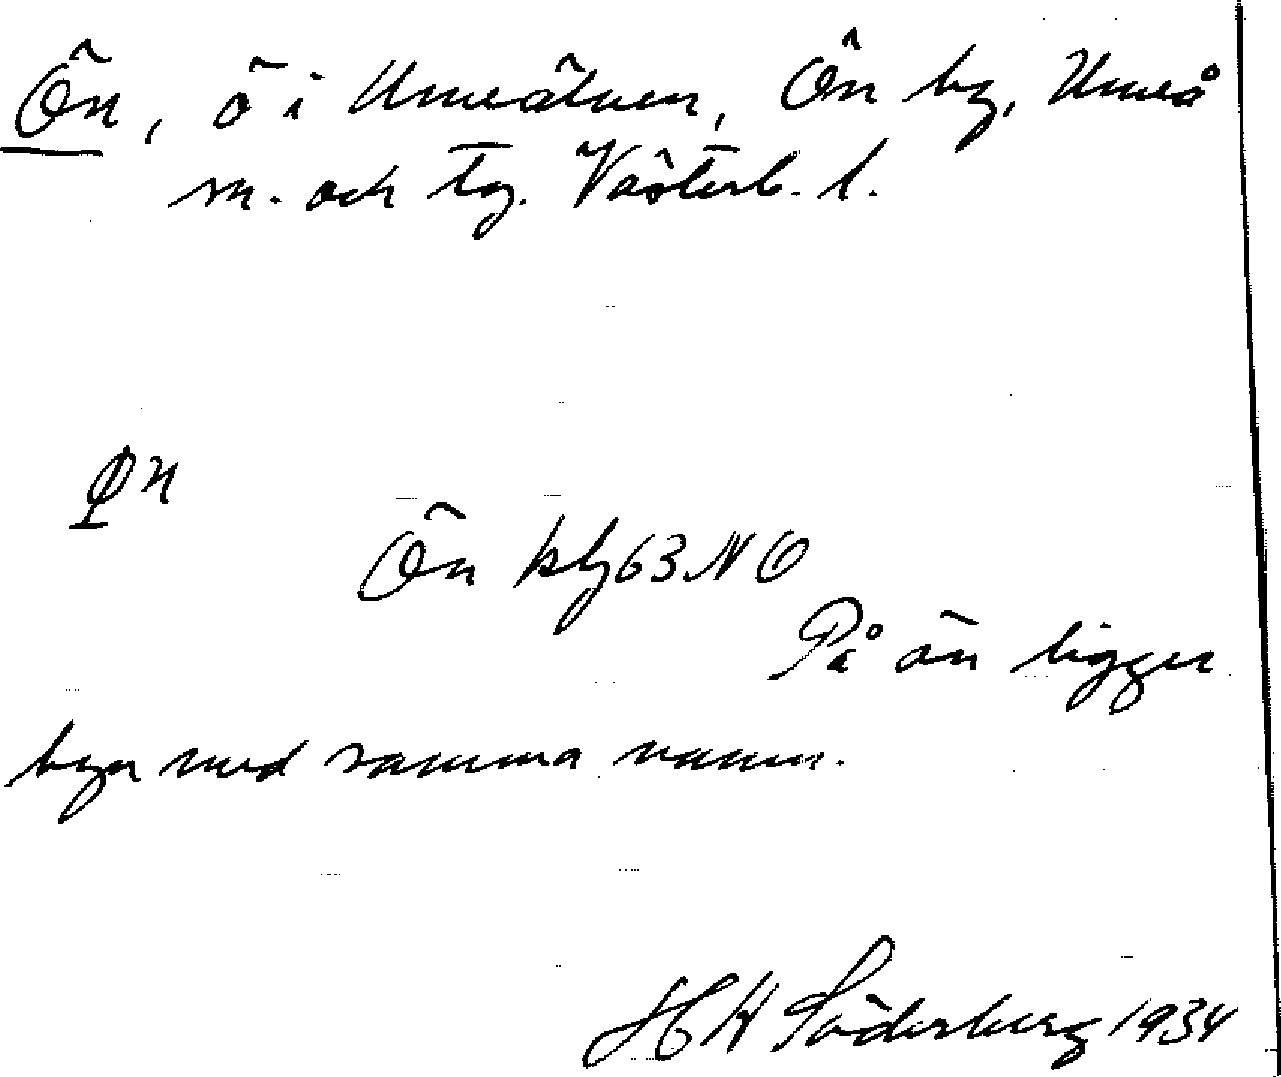 Ön, ö i Umeälven, Ön by, Umeå
sn. och tg. Västerb. l.
Ön kbl 63 NO
På ön ligger
byn med samma namn.
H W Söderberg 1934